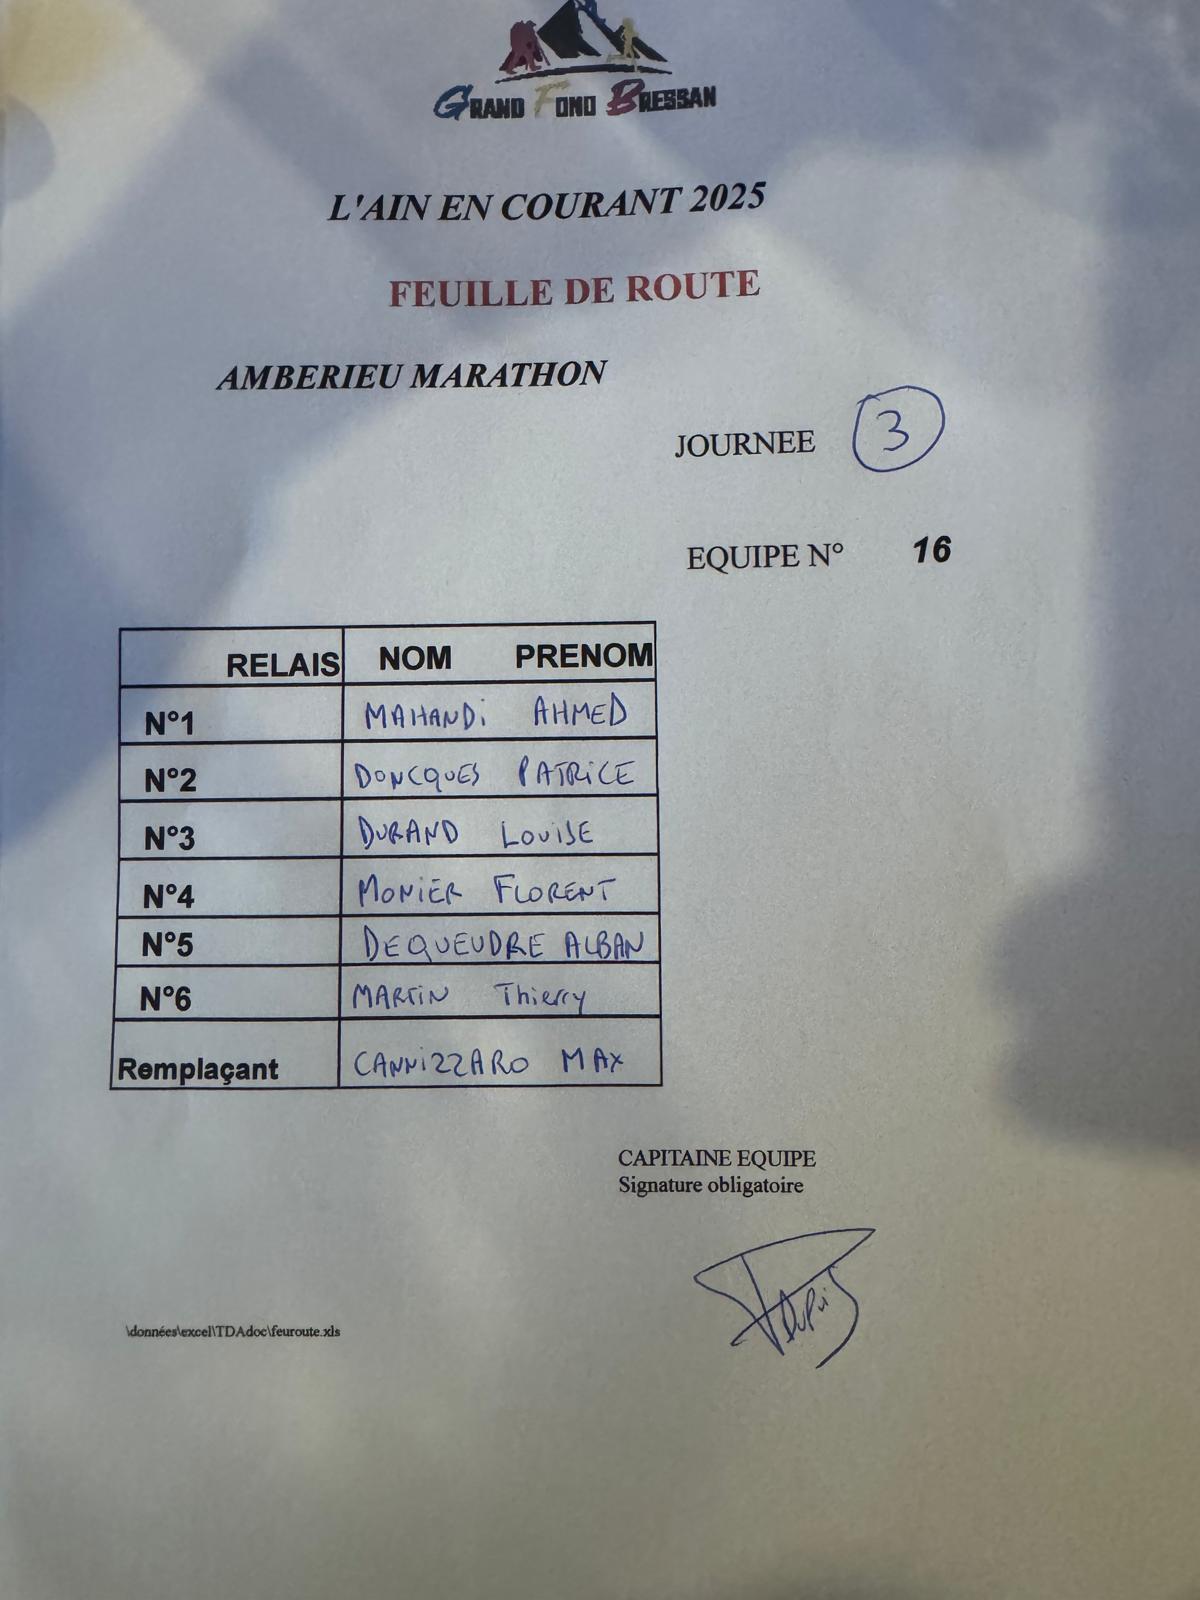 GRAND FOND BRESSAN
L'AIN EN COURANT 2025
FEUILLE DE ROUTE
AMBERIEU MARATHON
JOURNEE 3
EQUIPE N° 16
RELAIS NOM PRENOM
N°1 MAHANDi AHMED
N°2 DONCQUES PATRiCE
N°3 DURAND LOUISE
N°4 MONiER FLORENT
N°5 DEQUEUDRE ALBAN
N°6 MARTiN Thierry
Remplaçant CANNiZZARO MAX
CAPITAINE EQUIPE
Signature obligatoire
\données\excel\TDAdoc\feuroute.xls